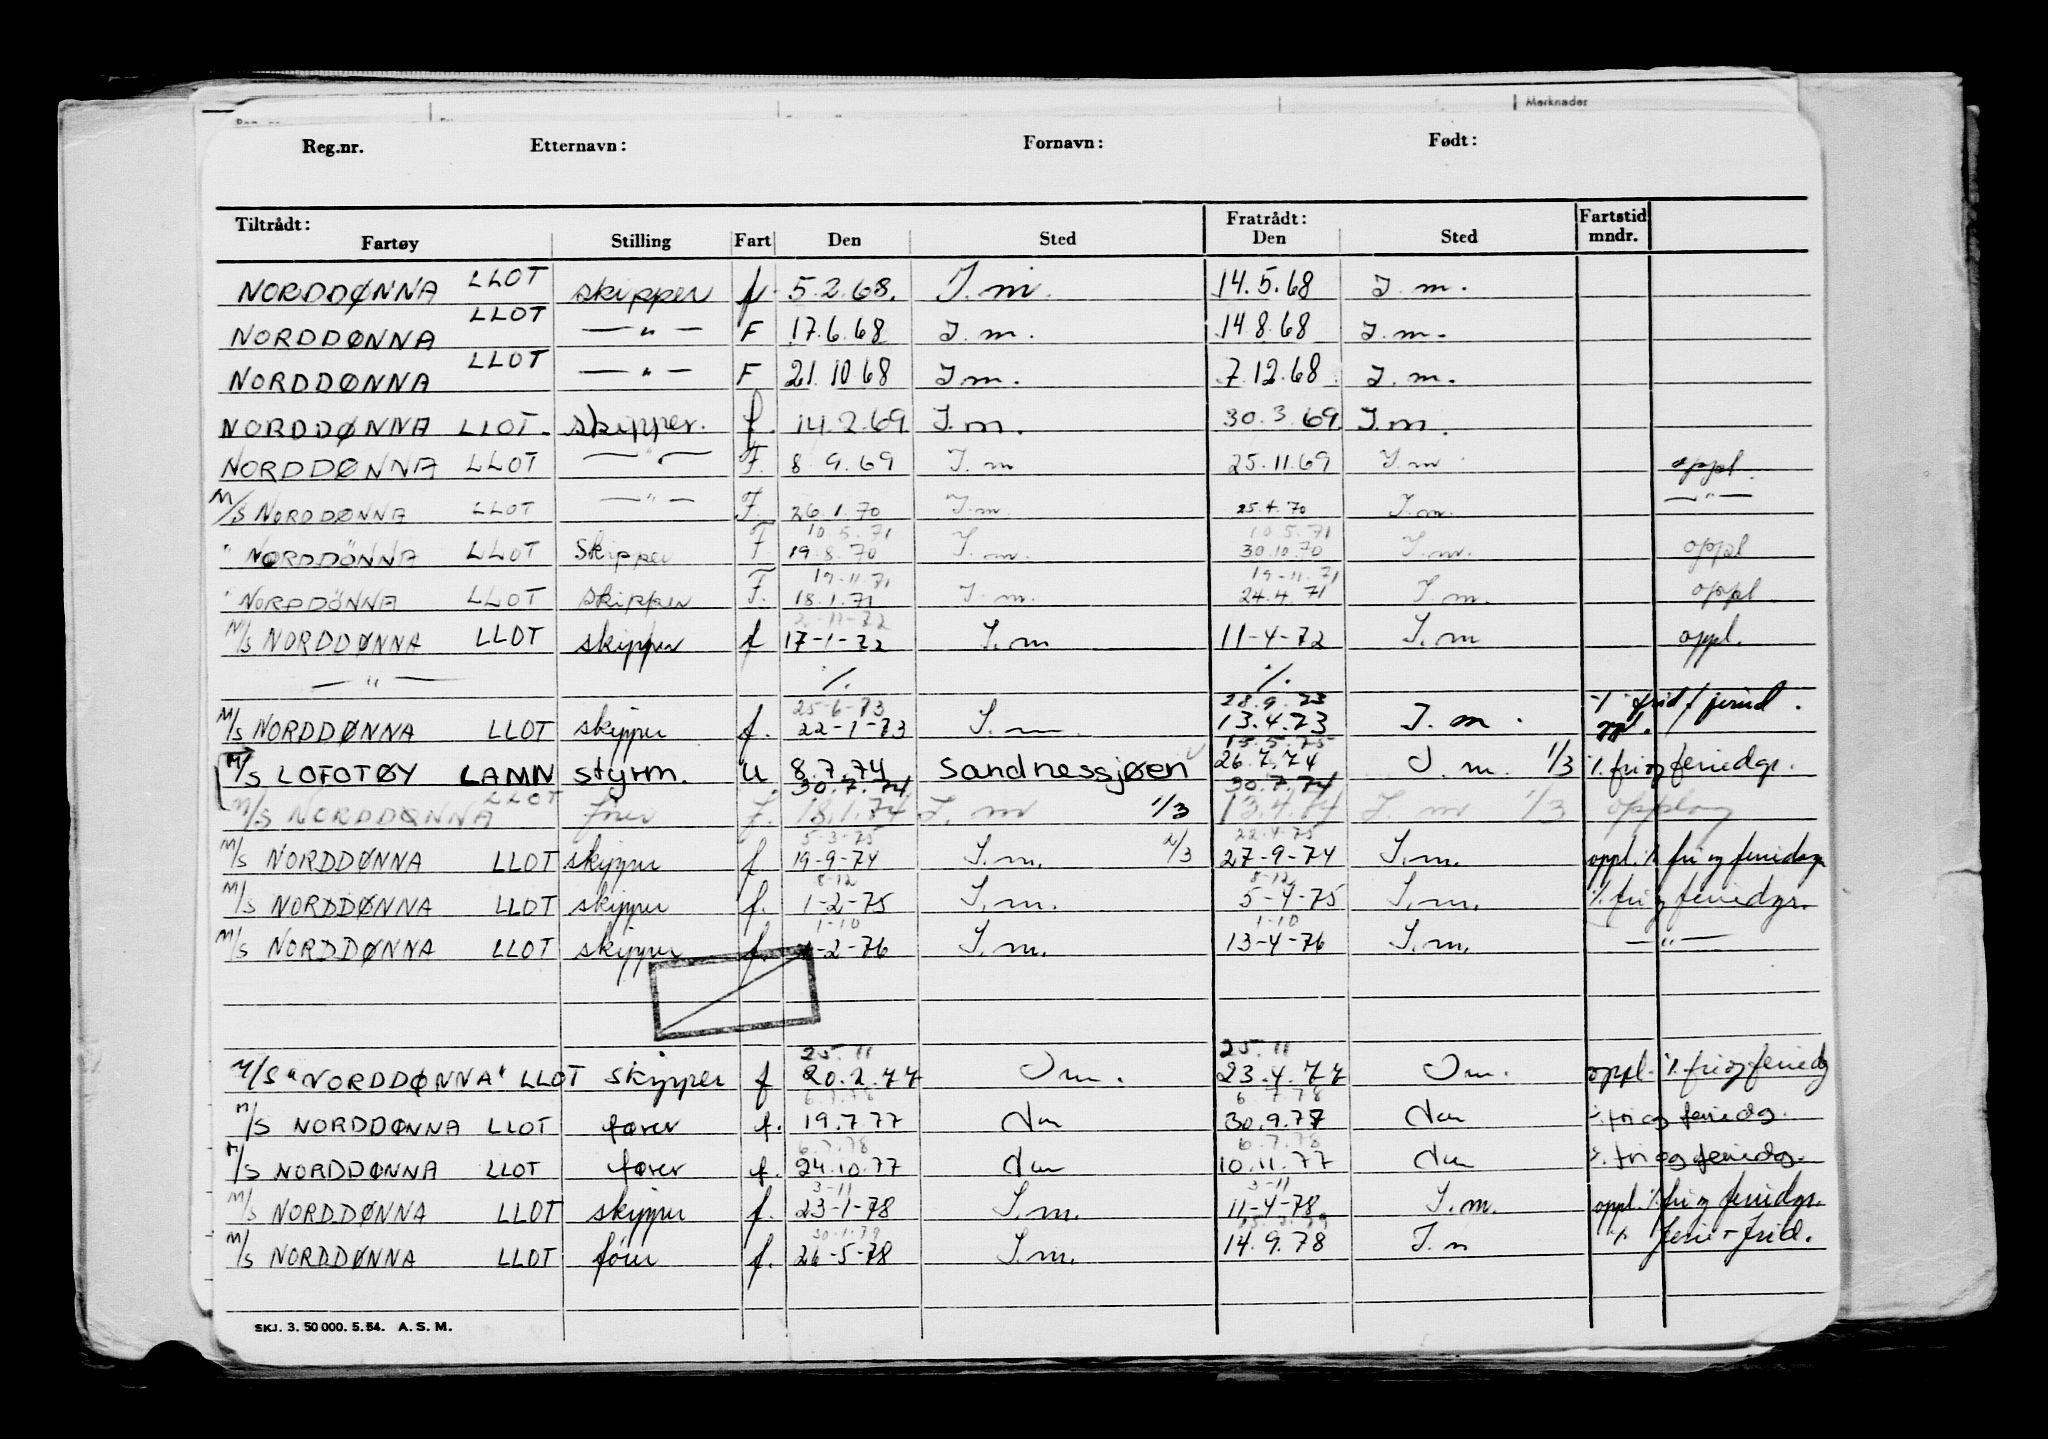 Merknader
Reg.nr. Etternavn: Fornavn: Født:
Tiltrådt: Fratrådt: Fartstid
Fartøy Stilling Fart Den Sted Den Sted mndr.
NORDDØNNA LLOT skipper f. 5.2.68. I.m. 14.5.68 I.m.
NORDDØNNA LLOT — " — F 17.6.68 I.m. 14.8.68 I.m.
NORDDØNNA LLOT — " — F 21.10 68 I m. 7.12.68. I.m.
NORDDØNNA LLOT. skipper. f. 14.2.69 I.m. 30.3.69 I.m.
NORDDØNNA LLOT — " — F. 8 9.69 I.m 25.11.69 I.m oppl.
M/S NORDDØNNA LLOT — " — F. 26.1.70 I.m. 25.4.70 I.m. — " —
10.5.71 10.5.71
" NORDDÖNNA LLOT Skipper F. 19.8.70 I.m. 30.10.70 I.m. oppl
19.11.71 19-11.71
" NORDDÖNNA LLOT skipper F. 18.1.71 I.m. 24.4.71 I.m. oppl
2-11-72
M/S NORDDØNNA LLOT skipper f 17-1-72 I.m 11-4-72 I.m oppl.
— " — ./. ./.
25-6-73 28.9.73
M/S NORDDØNNA LLOT skipper f. 22-1-73 I.m 13.4.73 I.m. oppl.
15.5.75
M/S LOFOTØY LAMN styrm. u 8.7.74 Sandnessjøen 26.7.74 I.m. 1/3 ./. fri og feriedgr.
30.7.74 30.7.74
M/S NORDDØNNA LLOT fører f. 18.1.74 I.m 1/3 13.4.74 I.m 1/3 opplag
5-3-75 22.4.75
M/S NORDDØNNA LLOT skipper f 19-9-74 I.m. 2/3 27-9-74 I.m. oppl. ./. fri og feriedgr
8-12 8-12
M/S NORDDØNNA LLOT skipper f. 1-2-75 I.m. 5-4-75 I.m. ./. fri og feriedgr.
1-10 1-10
M/S NORDDØNNA LLOT skipper f. 1-2-76 I.m. 13-4-76 I.m. — " —
25.11 25.11
M/S "NORDDØNNA" LLOT skipper f 20.2.77 I m. 23.4.77 I m. oppl. ./. fri og feriedg
6.7.78 6.7.78
M/S NORDDØNNA LLOT fører f. 19.7.77 30.9.77 ./. fri og feriedg.
6.7.78 6.7.78
M/S NORDDØNNA LLOT fører f. 24.10.77 10.11.77 ./. fri og feriedg.
3-11 3-11
M/S NORDDØNNA LLOT skipper f. 23-1-78 I.m. 11-4-78 I.m. oppl. ./. fri og feriedgr.
30.1.79
M/S NORDDØNNA LLOT fører f. 26-5-78 I.m. 14.9.78 I.m ./. ferie + frid.
SKJ. 3. 50 000. 5.54. A. S. M.